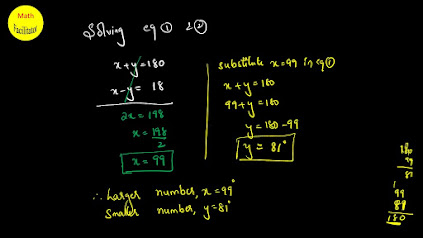 Math
Facilitator
Solving eq ① & ②
x+y=180
x-y= 18
2x = 198
x = 198
2
x = 99
substitute x=99 in eq①
x+y=180
99+y=180
y=180-99
y = 81°
∴ Larger number, x=99°
Smaller number, y=81°
180
99
81
1
99
81
180